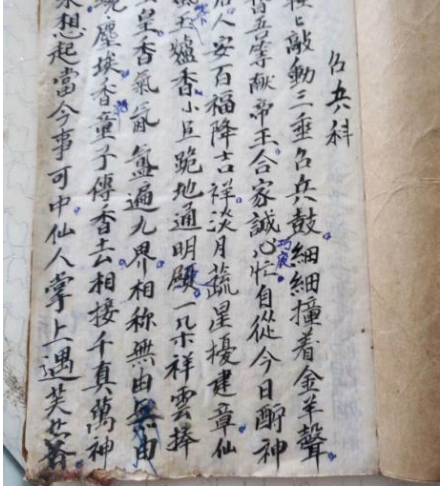 召兵科
樓上敲動三壶召兵鼓細細撞着金羊聲
皆吾等献帝王合家誠心忙自從今日酧神
人安百福降吉祥淡月蔬星擾建章仙
五爐香小臣跪地通明願一几示祥雲捧
皇香氣氤氳遍九界相称無由無由
境塵埃香童子傳香去相接千真萬神
想起當今事可中仙人掌上遇芙蓉